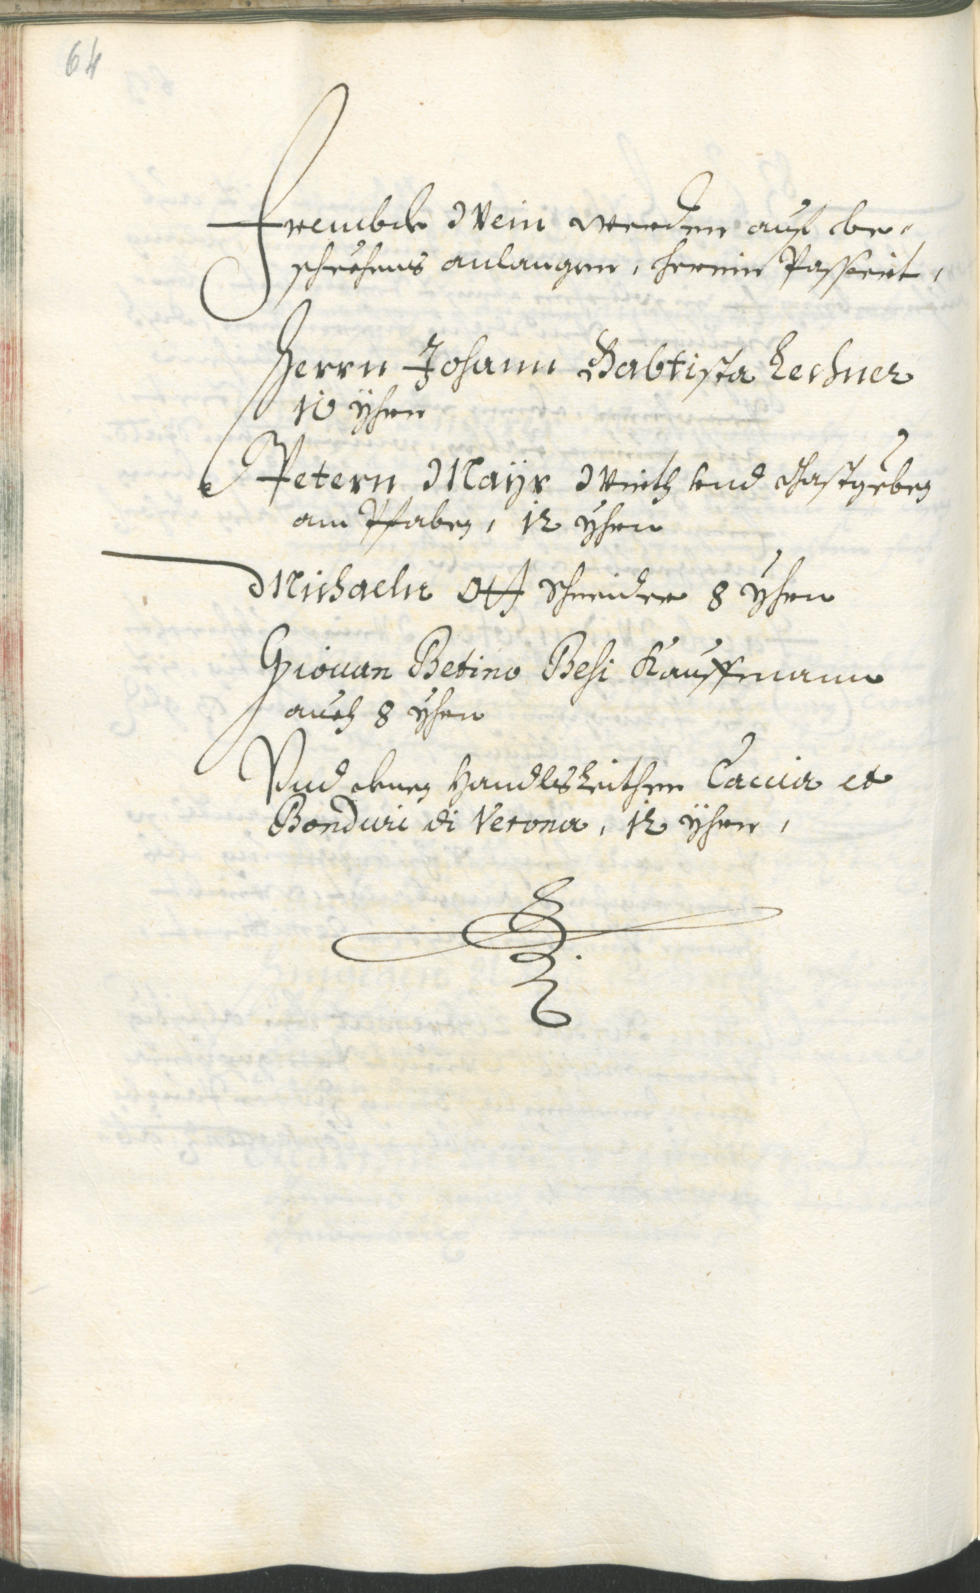 64
Frembde Wein werden auf be„
schechens anlangen, herein Passiert,
Herrn Johann Babtista Lechner
10 ÿhrn
Petern Maÿr Wirth und Gastgeben
am Pfaben, 12 ÿhrn
Michaeln Ott Schneider 8 ÿhrn
Giouan Betino Besi Kauffmann
auch 8 ÿhrn
Vnd denen Handlsleithen Caccia et
Bonduri di Verona, 12 ÿhrn,